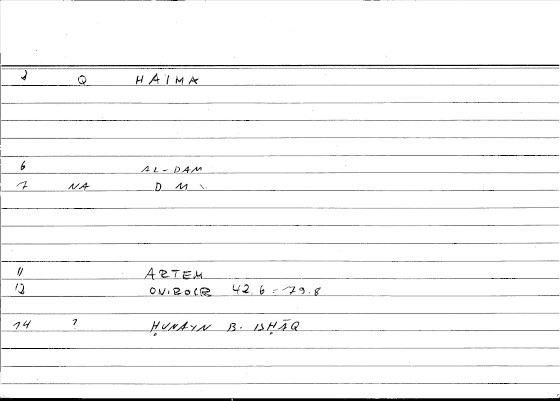 2 Q HAIMA
6 AL-DAM
7 NA D M
11 ARTEM
12 OVIBOCR 42.6 = 79.8
14 ? ḤUNAYN B. ISḤĀQ